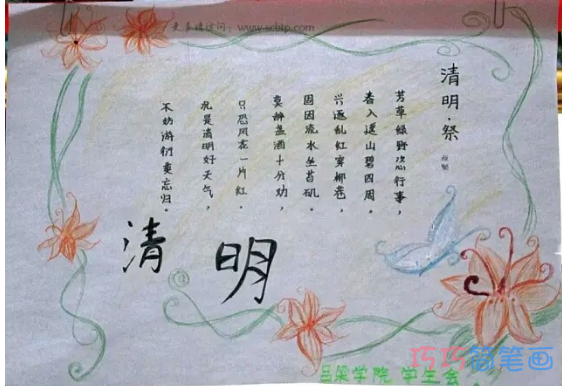 更多请访问：www.scbtp.com
清明·祭
程颢
芳草绿野恣行事，
春入遥山碧四周。
兴逐乱红穿柳巷，
固因流水坐苔矶。
莫辞盏酒十分劝，
只恐风花一片红。
况是清明好天气，
不妨游衍莫忘归。
清明
吕梁学院 学生会
巧巧简笔画